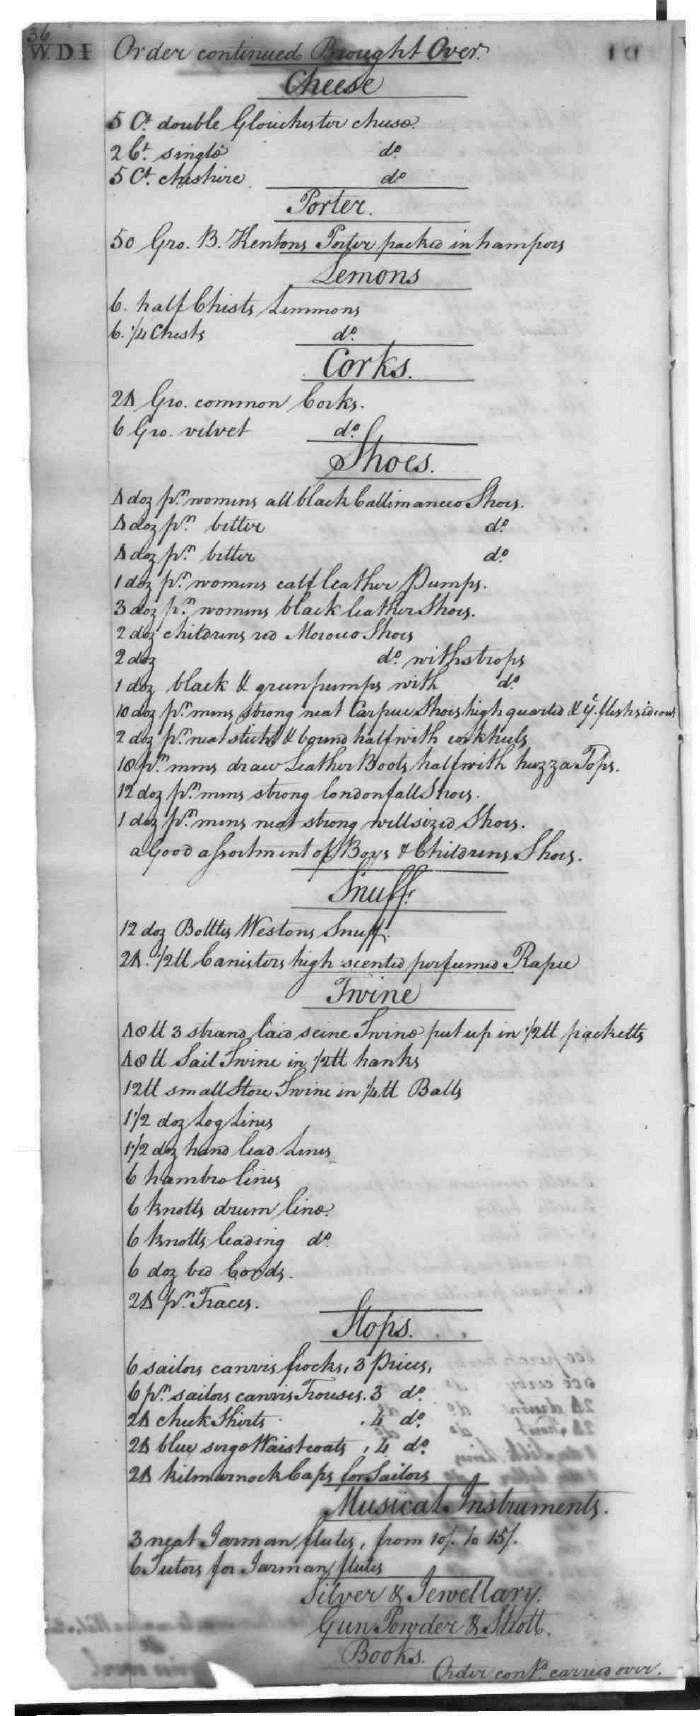 36
W.D.I Order continued Brought Over.
Cheese
5 Ct. double Glouchester cheese
2 Ct. single do.
5 Ct. cheshire do
Porter.
50 Gro. B. Kentons Porter packed in hampers
Lemons
6. half Chists Limmons
6. 1/4 Chests do.
Corks.
24 Gro. common Corks.
6 Gro. velvet do.
Shoes.
4 doz pr. womens all black Callimancco Shoes.
4 doz pr. better do.
4 doz pr. better do.
1 doz pr. womens calf leather Pumps.
3 doz pr. womens black leather Shoes.
2 doz childrens red Morocco Shoes
2 doz do. with strops
1 doz black & green pumps with do.
10 doz pr. mens strong neat Shoes high quarted & flesh side out
2 doz pr. neat sticht & bound half with cork heels
18 pr. mens draw Leather Boots half with huzza Tops.
12 doz pr. mens strong london fall Shoes.
1 doz pr. mens neat strong well sized Shoes.
a Good assortment of Boys & Childrens Shoes.
Snuff.
12 doz Botttles Westons Snuff.
24. 1/2 tt Canisters high scented perfumed Rapee
Twine
48 tt 3 strand laid seine Twine put up in 1/2 tt packetts
48 tt Sail Twine in 1/2 tt hanks
12 tt small Store Twine in 1/4 tt Balls
1 1/2 doz Log Lines
1 1/2 doz hand lead Lines
6 hambro lines
6 knotts drum line.
6 knotts leading do.
6 doz bed Cords.
24 pr. Traces.
Slops.
6 sailors canvis frocks, 3 Prices,
6 pr. sailors canvis Trouses. 3 do.
24 check Shirts . 4 do.
24 blue serge Waistcoats , 4 do.
24 kilmarnock Caps for Sailors
Musical Instruments.
3 neat Jarman flutes, from 10/. to 15/.
6 Tutors for Jarman flutes
Silver & Jewellary.
Gun Powder & Shott.
Books.
Order cond. carried over.